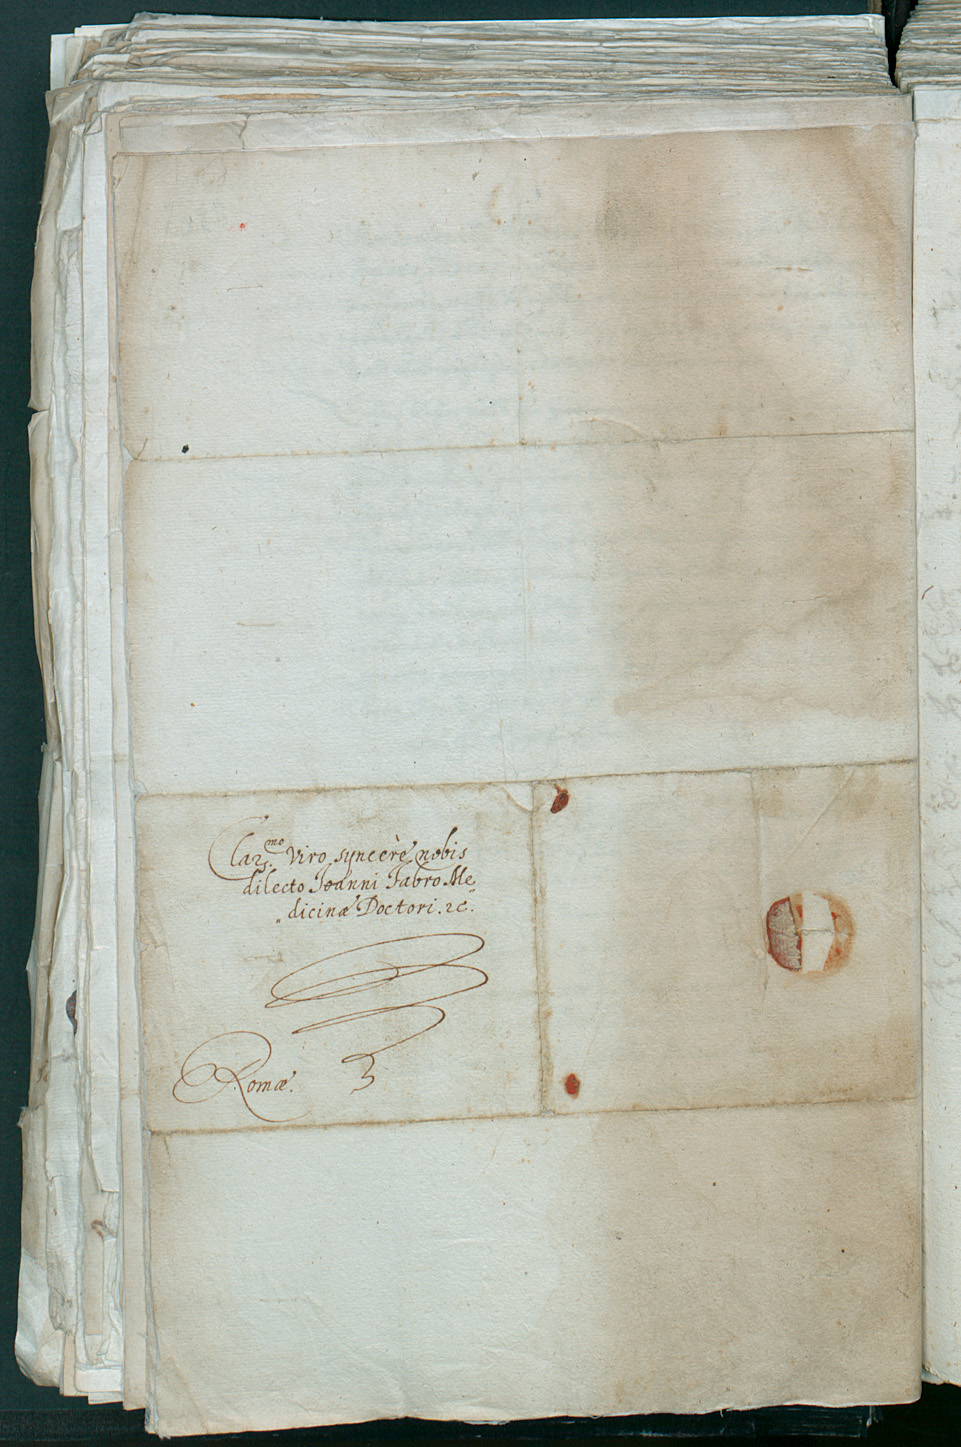 Clar.mo Viro syncerè nobis
dilecto Joanni Fabro Me
„dicinæ Doctori. &c.
Romæ.